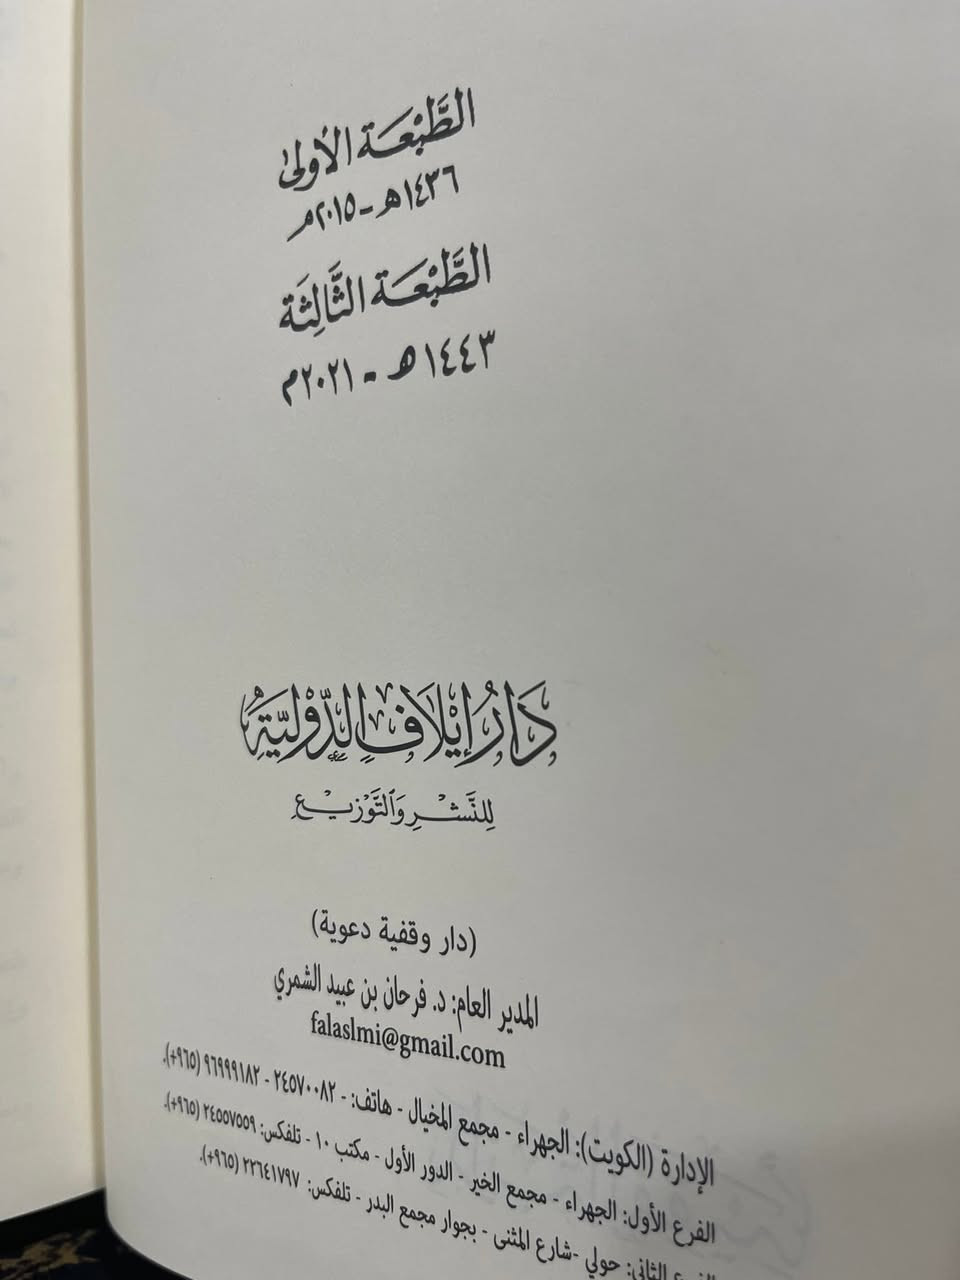 الطَّبْعَة الأولى
١٤٣٦هـ - ٢٠١٥م
الطَّبْعَة الثَّالِثَة
١٤٤٣هـ - ٢٠٢١م
دَارُ إِيْلَافٍ الدَّوْلِيَّةِ
لِلنَّشْرِ وَالتَّوْزِيْعِ
(دار وقفية دعوية)
المدير العام: د. فرحان بن عبيد الشمري
falaslmi@gmail.com
الإدارة (الكويت): الجهراء - مجمع المخيال - هاتف: - ٢٤٥٧٠٠٨٢ - ٩٦٩٩٩١٨٢ (٩٦٥+).
الفرع الأول: الجهراء - مجمع الخير - الدور الأول - مكتب ١٠ - تلفكس: ٢٤٥٥٧٥٥٩ (٩٦٥+).
الفرع الثاني: حولي -شارع المثنى - بجوار مجمع البدر - تلفكس: ٢٢٦٤١٧٩٧ (٩٦٥+).